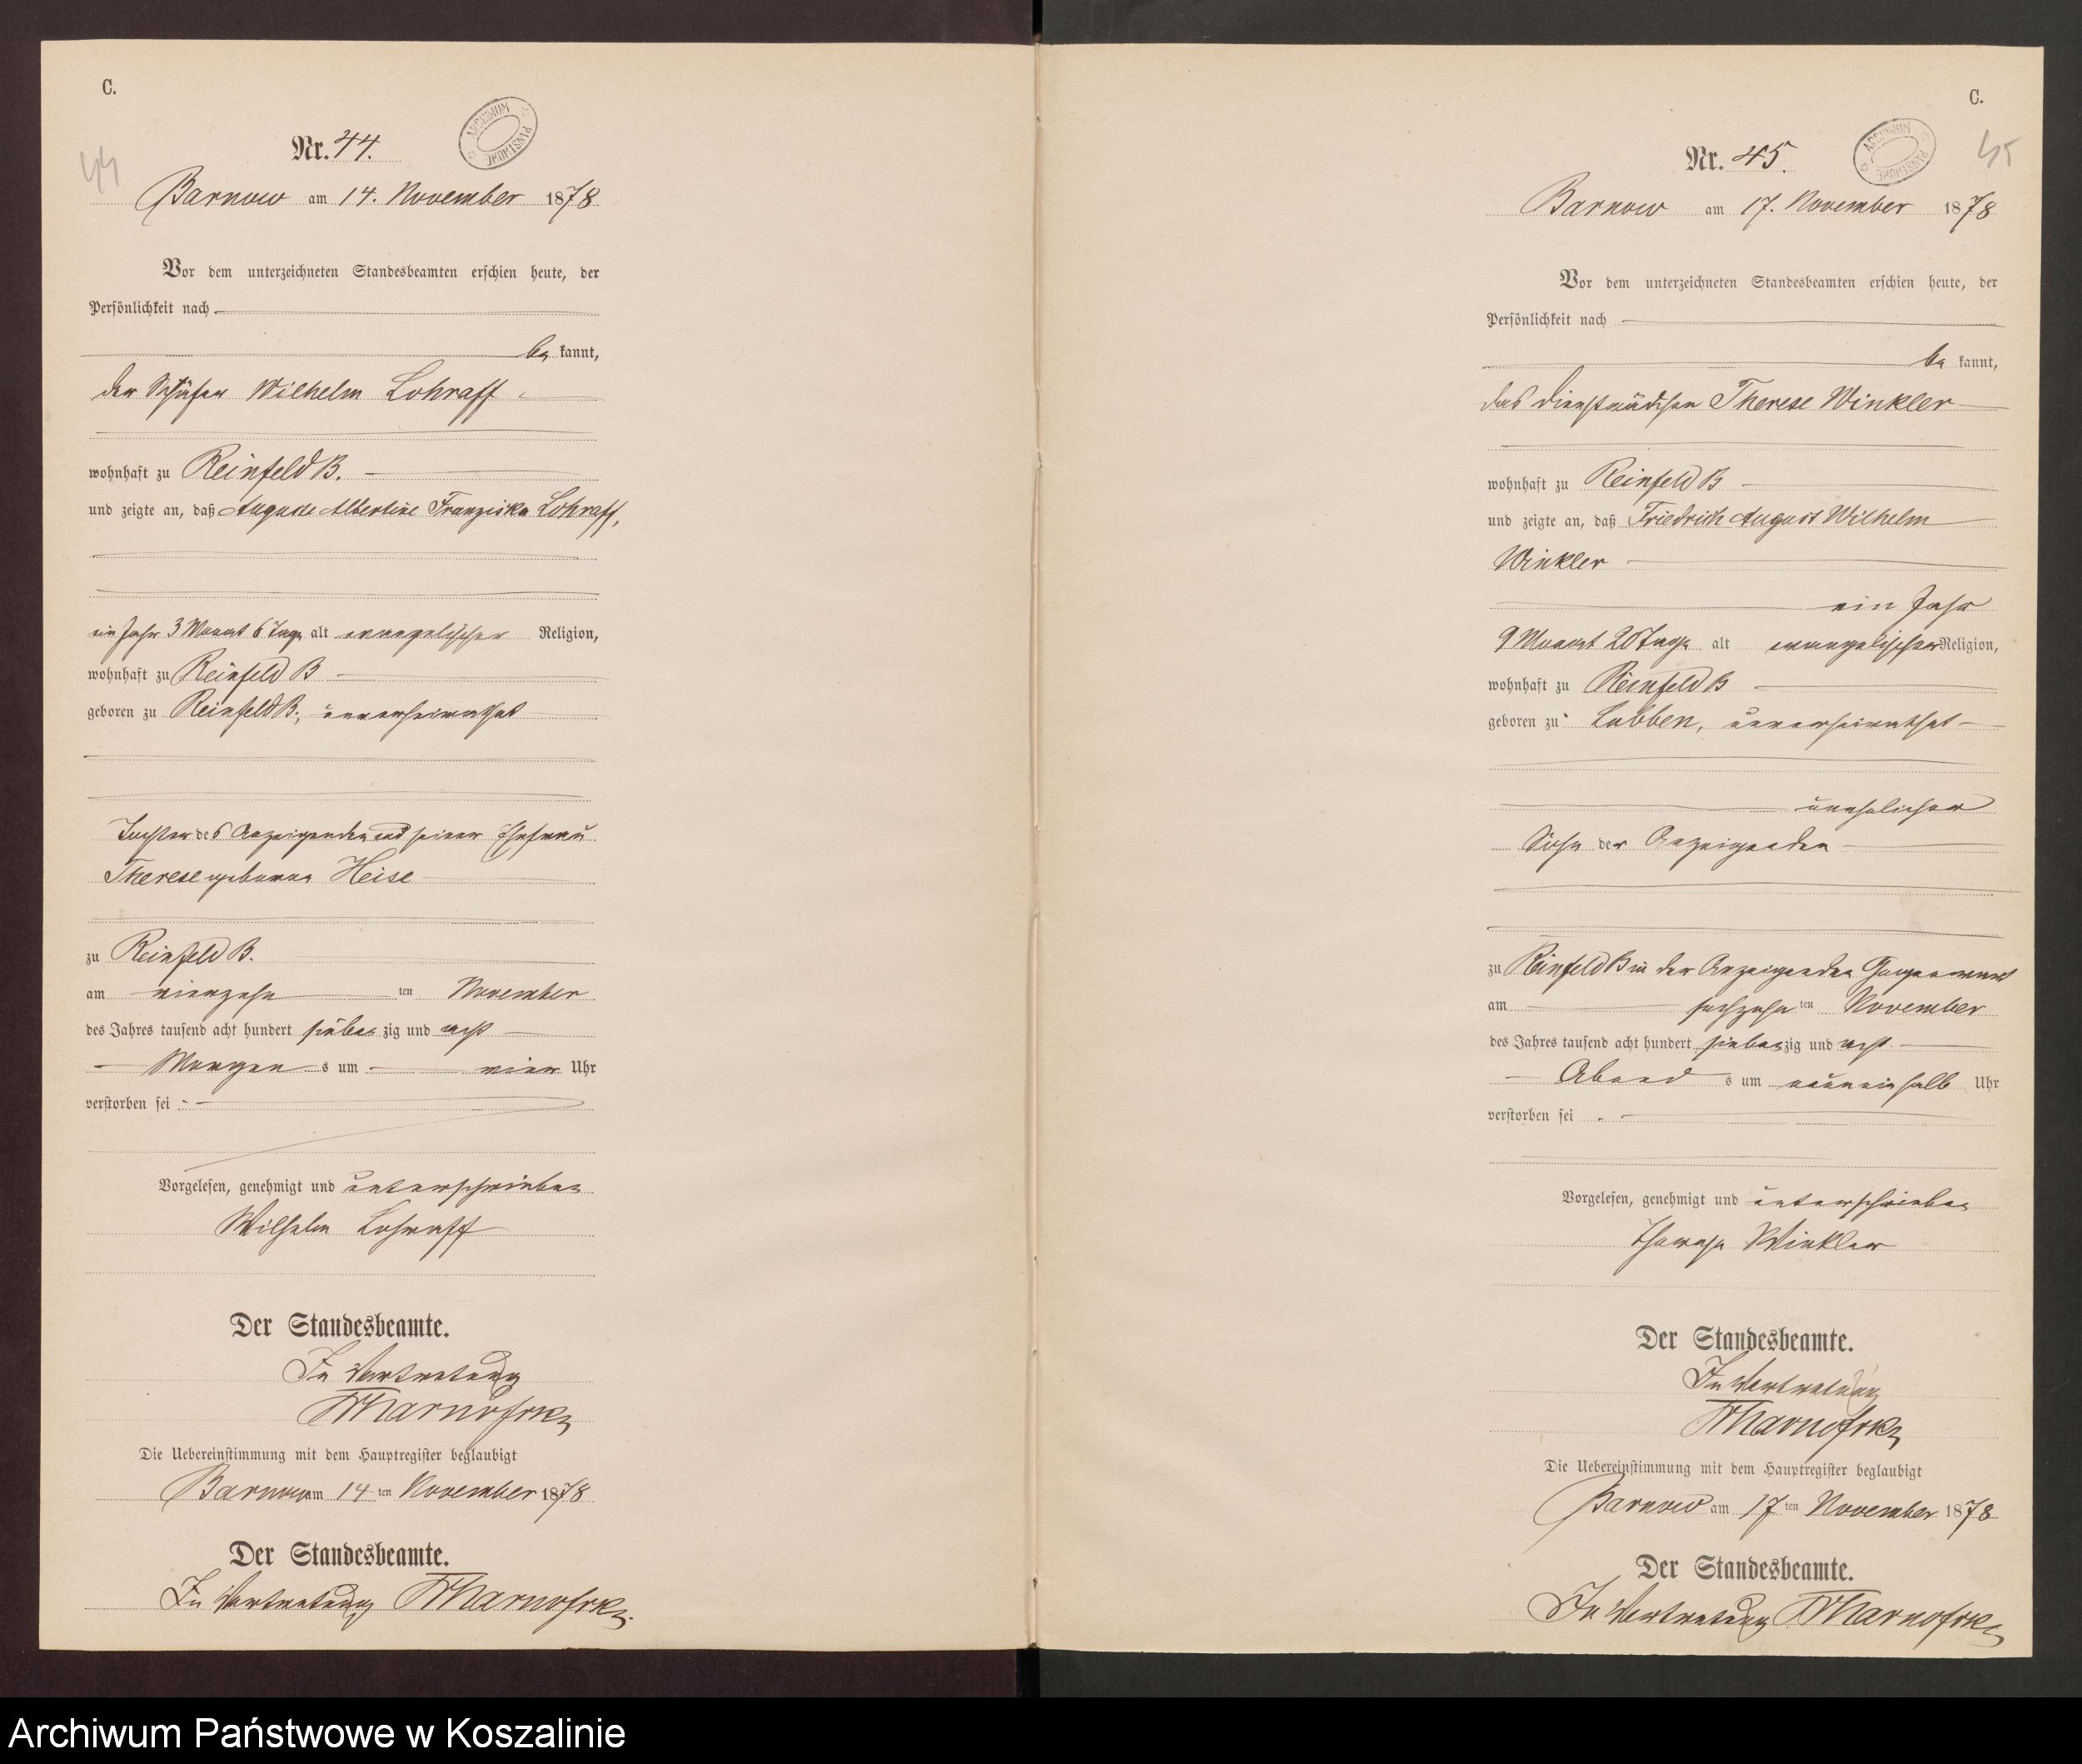 C.
Nr. 44.
44
ARCHIWUM PAŃSTWOWE
Barnow am 14. November 1878
Vor dem unterzeichneten Standesbeamten erschien heute, der
Persönlichkeit nach
be kannt,
der Schäfer Wilhelm Lohraff
wohnhaft zu Reinfeld B.
und zeigte an, daß Auguste Albertine Franziska Lohraff,
ein Jahr 3 Monat 6 Tage alt evangelischer Religion,
wohnhaft zu Reinfeld B
geboren zu Reinfeld B., unverheirathet
Tochter des Anzeigenden und seiner Ehefrau
Therese geborene Heise
zu Reinfeld B.
am vierzehn ten November
des Jahres tausend acht hundert sieben zig und acht
Morgen s um vier Uhr
verstorben sei
Vorgelesen, genehmigt und unterschrieben
Wilhelm Lohraff
Der Standesbeamte.
In Vertretung
Die Uebereinstimmung mit dem Hauptregister beglaubigt
Barnow am 14 ten November 1878
Der Standesbeamte.
In Vertretung
C.
Nr. 45.
45
ARCHIWUM PAŃSTWOWE
Barnow am 17. November 1878
Vor dem unterzeichneten Standesbeamten erschien heute, der
Persönlichkeit nach
be kannt,
das Dienstmädchen Therese Winkler
wohnhaft zu Reinfeld B
und zeigte an, daß Friedrich August Wilhelm
Winkler
ein Jahr
9 Monat 20 Tage alt evangelischer Religion,
wohnhaft zu Reinfeld B
geboren zu Lubben, unverheirathet
unehelicher
Sohn der Anzeigenden
zu Reinfeld B in der Anzeigenden Gegenwart
am sechzehn ten November
des Jahres tausend acht hundert sieben zig und acht
Abend s um neuneinhalb Uhr
verstorben sei
Vorgelesen, genehmigt und unterschrieben
Therese Winkler
Der Standesbeamte.
In Vertretung
Die Uebereinstimmung mit dem Hauptregister beglaubigt
Barnow am 17 ten November 1878
Der Standesbeamte.
In Vertretung
Archiwum Państwowe w Koszalinie